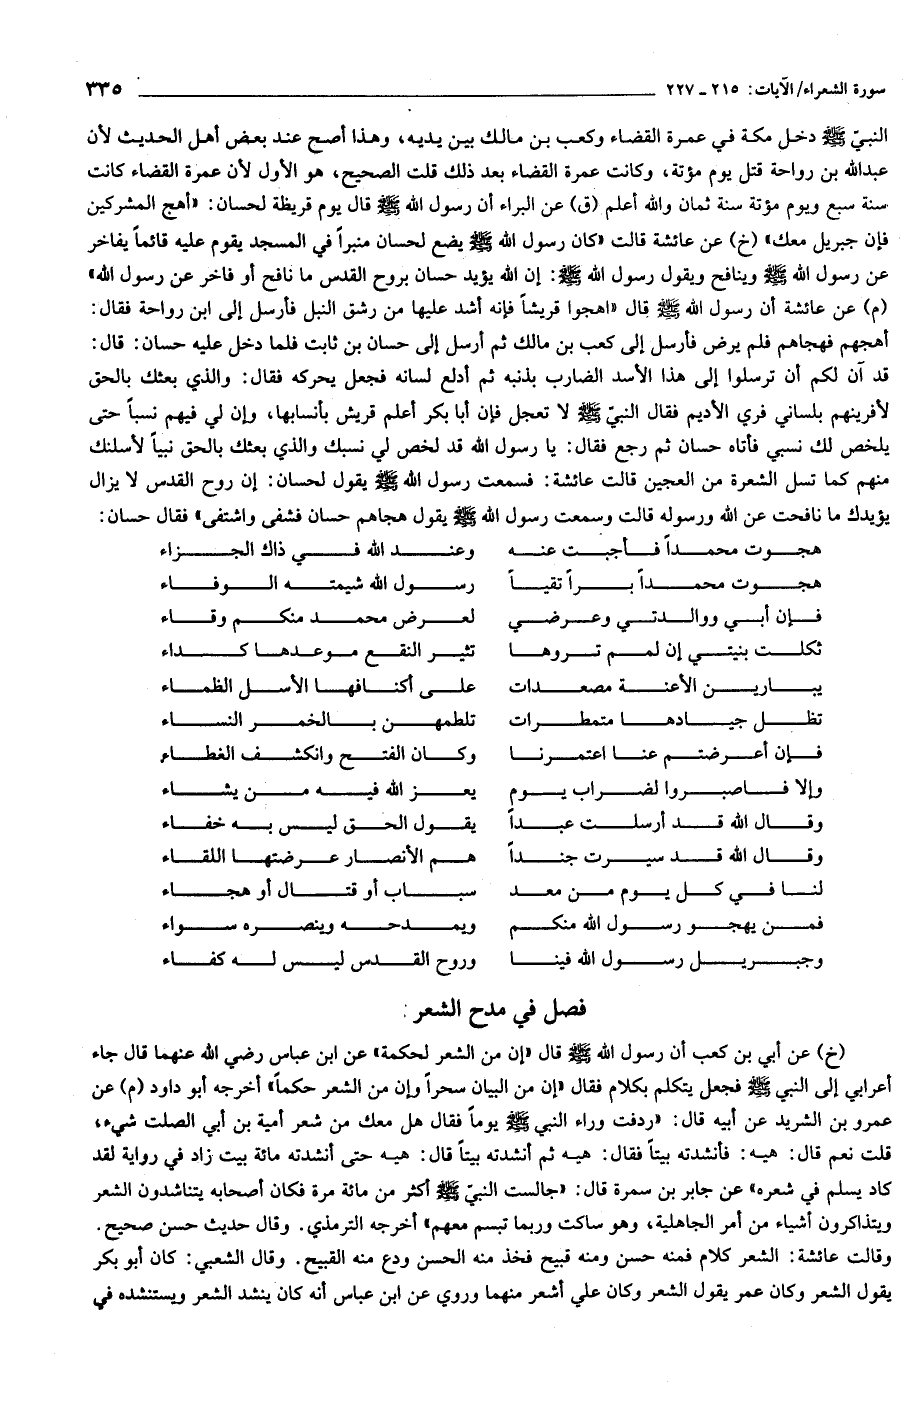 سورة الشعراء/ الآيات: ٢١٥ ـ ٢٢٧ ٣٣٥
النبيّ ﷺ دخل مكة في عمرة القضاء وكعب بن مالك بين يديه، وهذا أصح عند بعض أهل الحديث لأن
عبدالله بن رواحة قتل يوم مؤتة، وكانت عمرة القضاء بعد ذلك قلت الصحيح، هو الأول لأن عمرة القضاء كانت
سنة سبع ويوم مؤتة سنة ثمان والله أعلم (ق) عن البراء أن رسول الله ﷺ قال يوم قريظة لحسان: «أهج المشركين
فإن جبريل معك» (خ) عن عائشة قالت «كان رسول الله ﷺ يضع لحسان منبراً في المسجد يقوم عليه قائماً يفاخر
عن رسول الله ﷺ وينافح ويقول رسول الله ﷺ: إن الله يؤيد حسان بروح القدس ما نافح أو فاخر عن رسول الله»
(م) عن عائشة أن رسول الله ﷺ قال «اهجوا قريشاً فإنه أشد عليها من رشق النبل فأرسل إلى ابن رواحة فقال:
أهجهم فهجاهم فلم يرض فأرسل إلى كعب بن مالك ثم أرسل إلى حسان بن ثابت فلما دخل عليه حسان: قال:
قد آن لكم أن ترسلوا إلى هذا الأسد الضارب بذنبه ثم أدلع لسانه فجعل يحركه فقال: والذي بعثك بالحق
لأفرينهم بلساني فري الأديم فقال النبيّ ﷺ لا تعجل فإن أبا بكر أعلم قريش بأنسابها، وإن لي فيهم نسباً حتى
يلخص لك نسبي فأتاه حسان ثم رجع فقال: يا رسول الله قد لخص لي نسبك والذي بعثك بالحق نبياً لأسلنك
منهم كما تسل الشعرة من العجين قالت عائشة: فسمعت رسول الله ﷺ يقول لحسان: إن روح القدس لا يزال
يؤيدك ما نافحت عن الله ورسوله قالت وسمعت رسول الله ﷺ يقول هجاهم حسان فشفى واشتفى» فقال حسان:
هجوت محمداً فأجبت عنه وعند الله في ذاك الجزاء
هجوت محمداً براً تقياً رسول الله شيمته الوفاء
فإن أبي ووالدتي وعرضي لعرض محمد منكم وقاء
ثكلت بنيتي إن لم تروها تثير النقع موعدها كداء
يبارين الأعنة مصعدات على أكتافها الأسل الظماء
تظل جيادها متمطرات تلطمهن بالخمر النساء
فإن أعرضتم عنا اعتمرنا وكان الفتح وانكشف الغطاء
وإلا فاصبروا لضراب يوم يعز الله فيه من يشاء
وقال الله قد أرسلت عبداً يقول الحق ليس به خفاء
وقال الله قد سيرت جنداً هم الأنصار عرضتها اللقاء
لنا في كل يوم من معد سباب أو قتال أو هجاء
فمن يهجو رسول الله منكم ويمدحه وينصره سواء
وجبريل رسول الله فينا وروح القدس ليس له كفاء
فصل في مدح الشعر:
(خ) عن أبي بن كعب أن رسول الله ﷺ قال «إن من الشعر لحكمة» عن ابن عباس رضي الله عنهما قال جاء
أعرابي إلى النبي ﷺ فجعل يتكلم بكلام فقال «إن من البيان سحراً وإن من الشعر حكماً» أخرجه أبو داود (م) عن
عمرو بن الشريد عن أبيه قال: «ردفت وراء النبي ﷺ يوماً فقال هل معك من شعر أمية بن أبي الصلت شيء،
قلت نعم قال: هيه: فأنشدته بيتاً فقال: هيه ثم أنشدته بيتاً قال: هيه حتى أنشدته مائة بيت زاد في رواية لقد
كاد يسلم في شعره» عن جابر بن سمرة قال: «جالست النبيّ ﷺ أكثر من مائة مرة فكان أصحابه يتناشدون الشعر
ويتذاكرون أشياء من أمر الجاهلية، وهو ساكت وربما تبسم معهم» أخرجه الترمذي. وقال حديث حسن صحيح.
وقالت عائشة: الشعر كلام فمنه حسن ومنه قبيح فخذ منه الحسن ودع منه القبيح. وقال الشعبي: كان أبو بكر
يقول الشعر وكان عمر يقول الشعر وكان علي أشعر منهما وروي عن ابن عباس أنه كان ينشد الشعر ويستنشده في